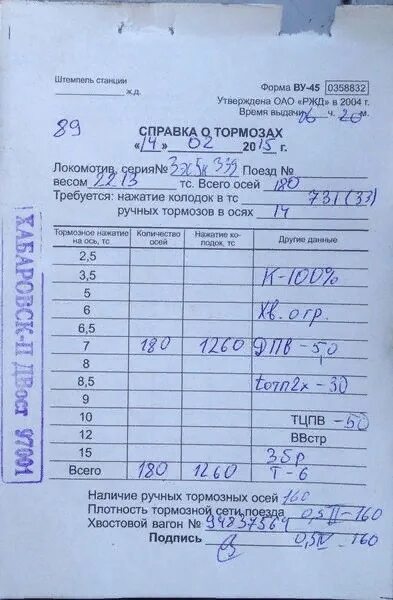 Штемпель станции
ж.д.
Форма ВУ-45 0358832
Утверждена ОАО «РЖД» в 2004 г.
Время выдачи 06 ч. 20 м.
89
СПРАВКА О ТОРМОЗАХ
«14» 02 2015 г.
Локомотив, серия№ 339 Поезд №
весом 2213 тс. Всего осей 180
Требуется: нажатие колодок в тс 731 (33)
ручных тормозов в осях 14
Тормозное нажатие на ось, тс Количество осей Нажатие колодок, тс Другие данные
2,5
3,5 К-100%
5
6 Хв. огр.
6,5
7 180 1260 ДПВ-50
8
8,5 -30
9
10 ТЦПВ -50
12 ВВстр
15
Всего 180 1260 Т-6
Наличие ручных тормозных осей 160
Плотность тормозной сети поезда 0,5 II-160
Хвостовой вагон № 94837564 0,5 IV-160
Подпись
ХАБАРОВСК-II ДВост 97001